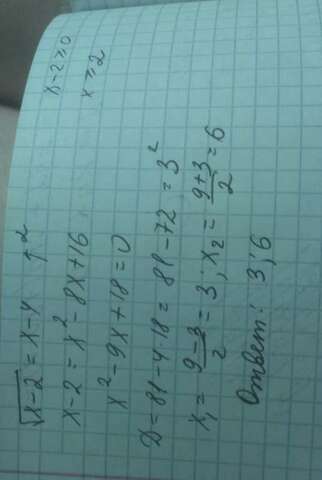 √x-2 = x-4 ↑2
x-2 = x²-8x+16
x²-9x+18=0
D=81-4·18=81-72=3²
x₁ = 9-3/2 = 3; x₂ = 9+3/2 = 6
Ответ: 3; 6
x-2≥0
x≥2